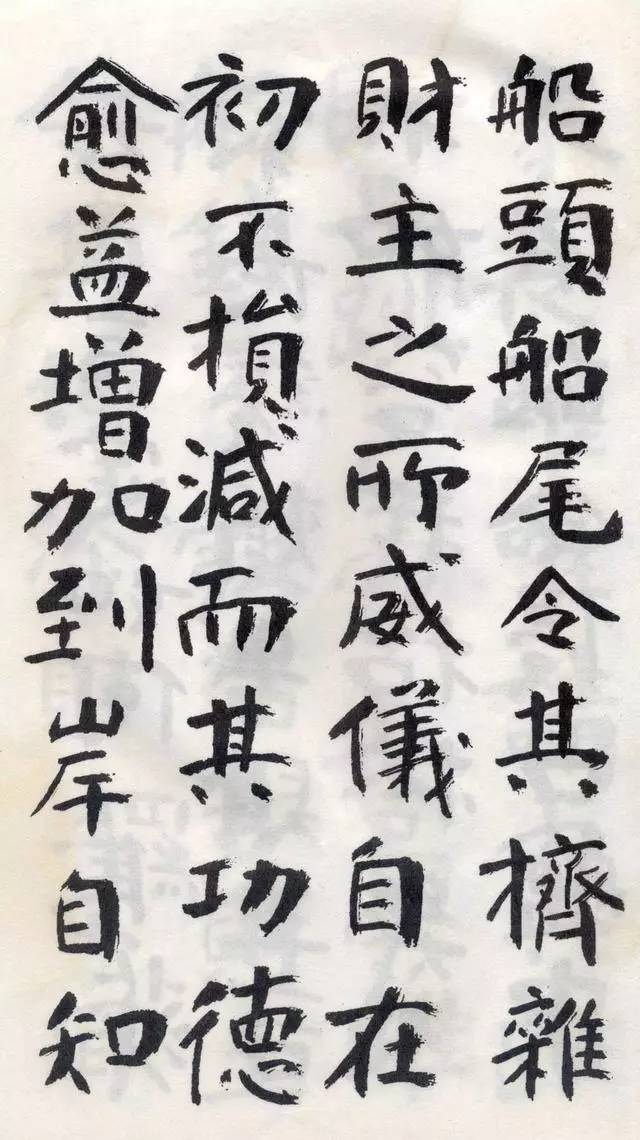 船頭船尾令其擠雜
財主之所威儀自在
初不損減而其功德
愈益增加到岸自知